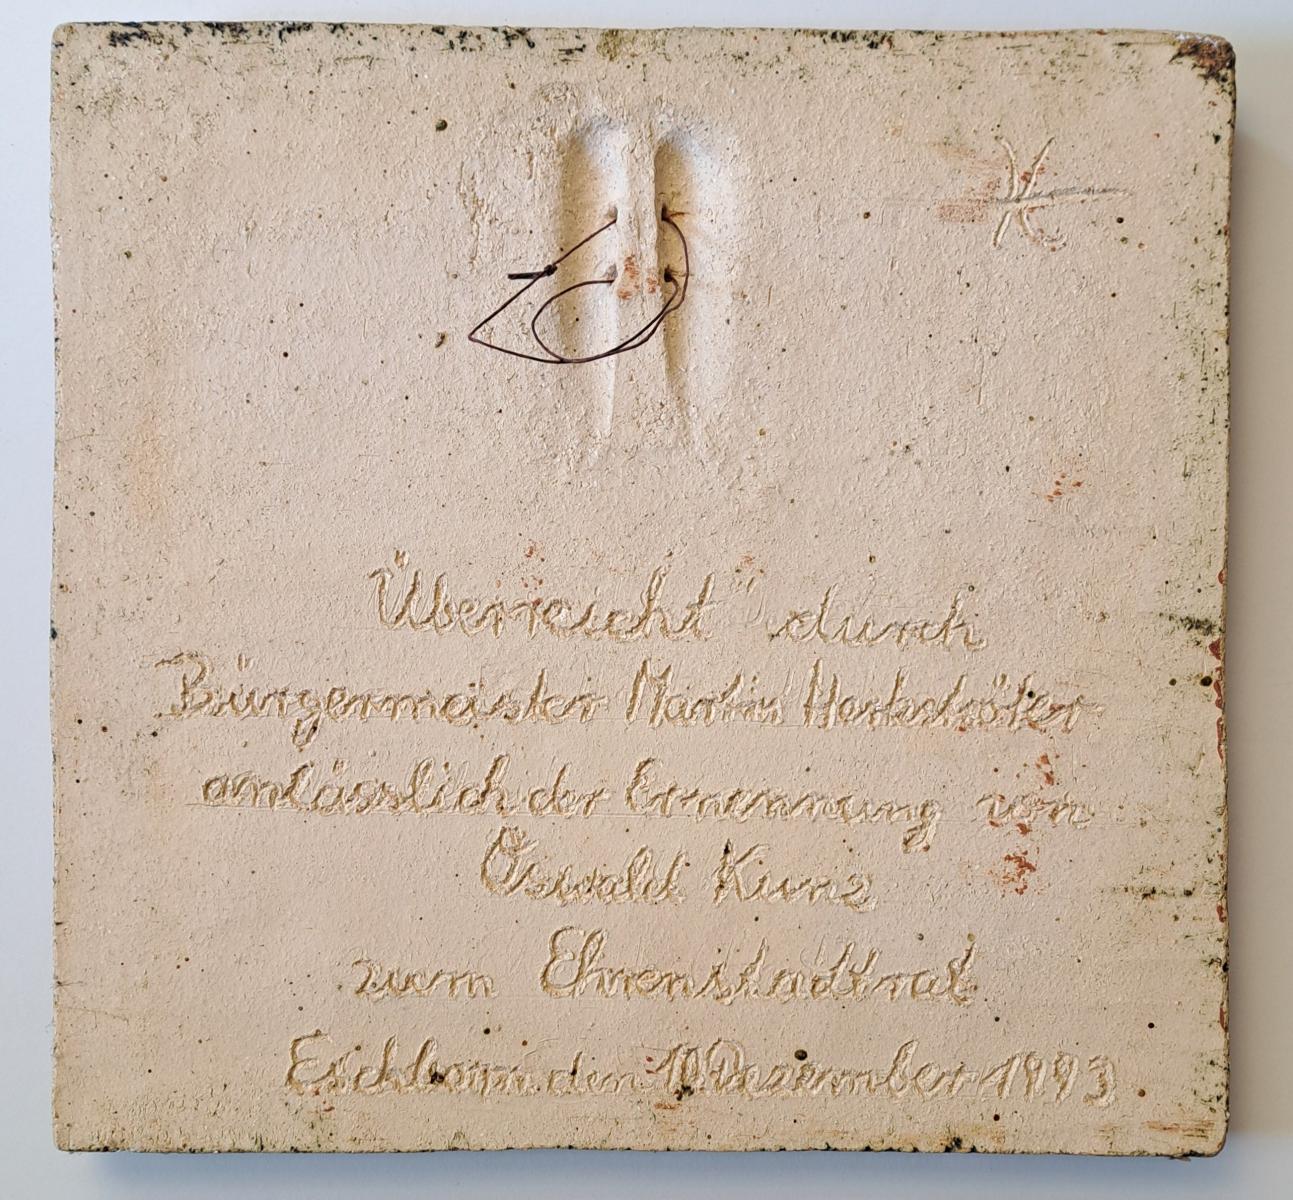 Überreicht durch
Bürgermeister Martin Herkströter
anlässlich der Ernennung von
Oswald Kunz
zum Ehrenstadtrat
Eschborn den 10 Dezember 1993